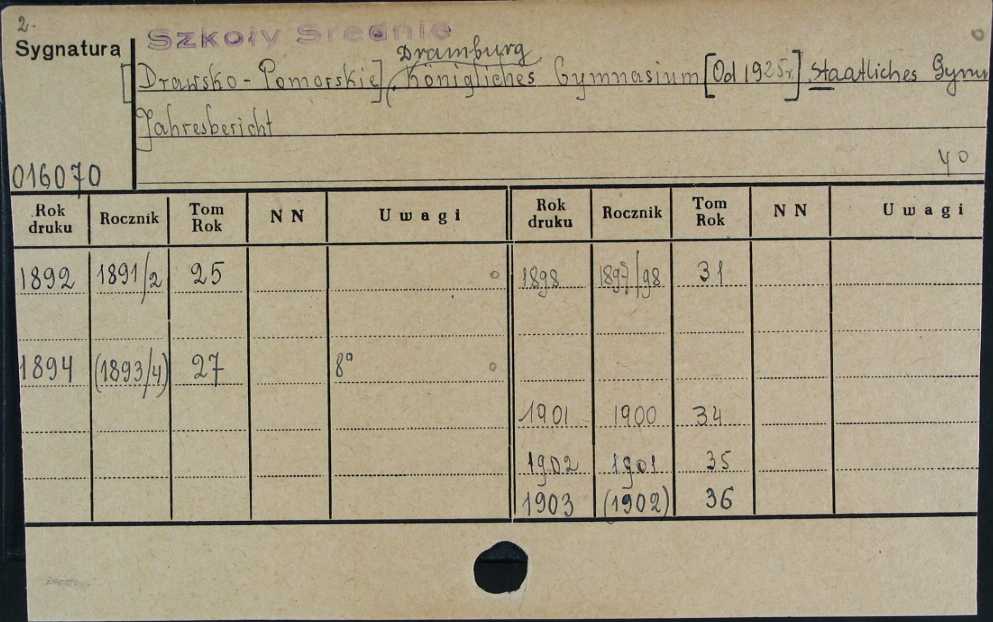 2.
Szkoły Średnie
Sygnatura
Dramburg
[Drawsko-Pomorskie]. Königliches Gymnasium [Od 1925r.] Staatliches Gymn
Jahresbericht
016070
40
Rok druku Rocznik Tom Rok NN Uwagi Rok druku Rocznik Tom Rok NN Uwagi
1892 1891/2 25 1898 1897/98 31
1894 (1893/4) 27 8°
1901 1900 34
1902 1901 35
1903 (1902) 36